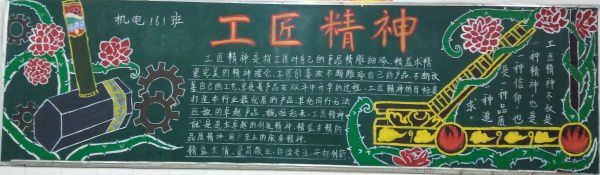 机电161班
工匠精神
工匠精神是指工匠对自己的产品精雕细琢、精益求精
更完美的精神理念。工匠们喜欢不断雕琢自己的产品，不断改
善自己的工艺，享受着产品在双手中升华的过程。工匠精神的目标是
打造本行业最优质的产品，其他同行无法
匹敌的卓越产品。概括起来，工匠精神
就是追求卓越的创造精神、精益求精的
品质精神、用户至上的服务精神。
精益求精、爱岗敬业、持续专注、开拓创新
工匠精神不仅是
一种精神，也是
一种信仰，也
是一种品质
一种追
求。